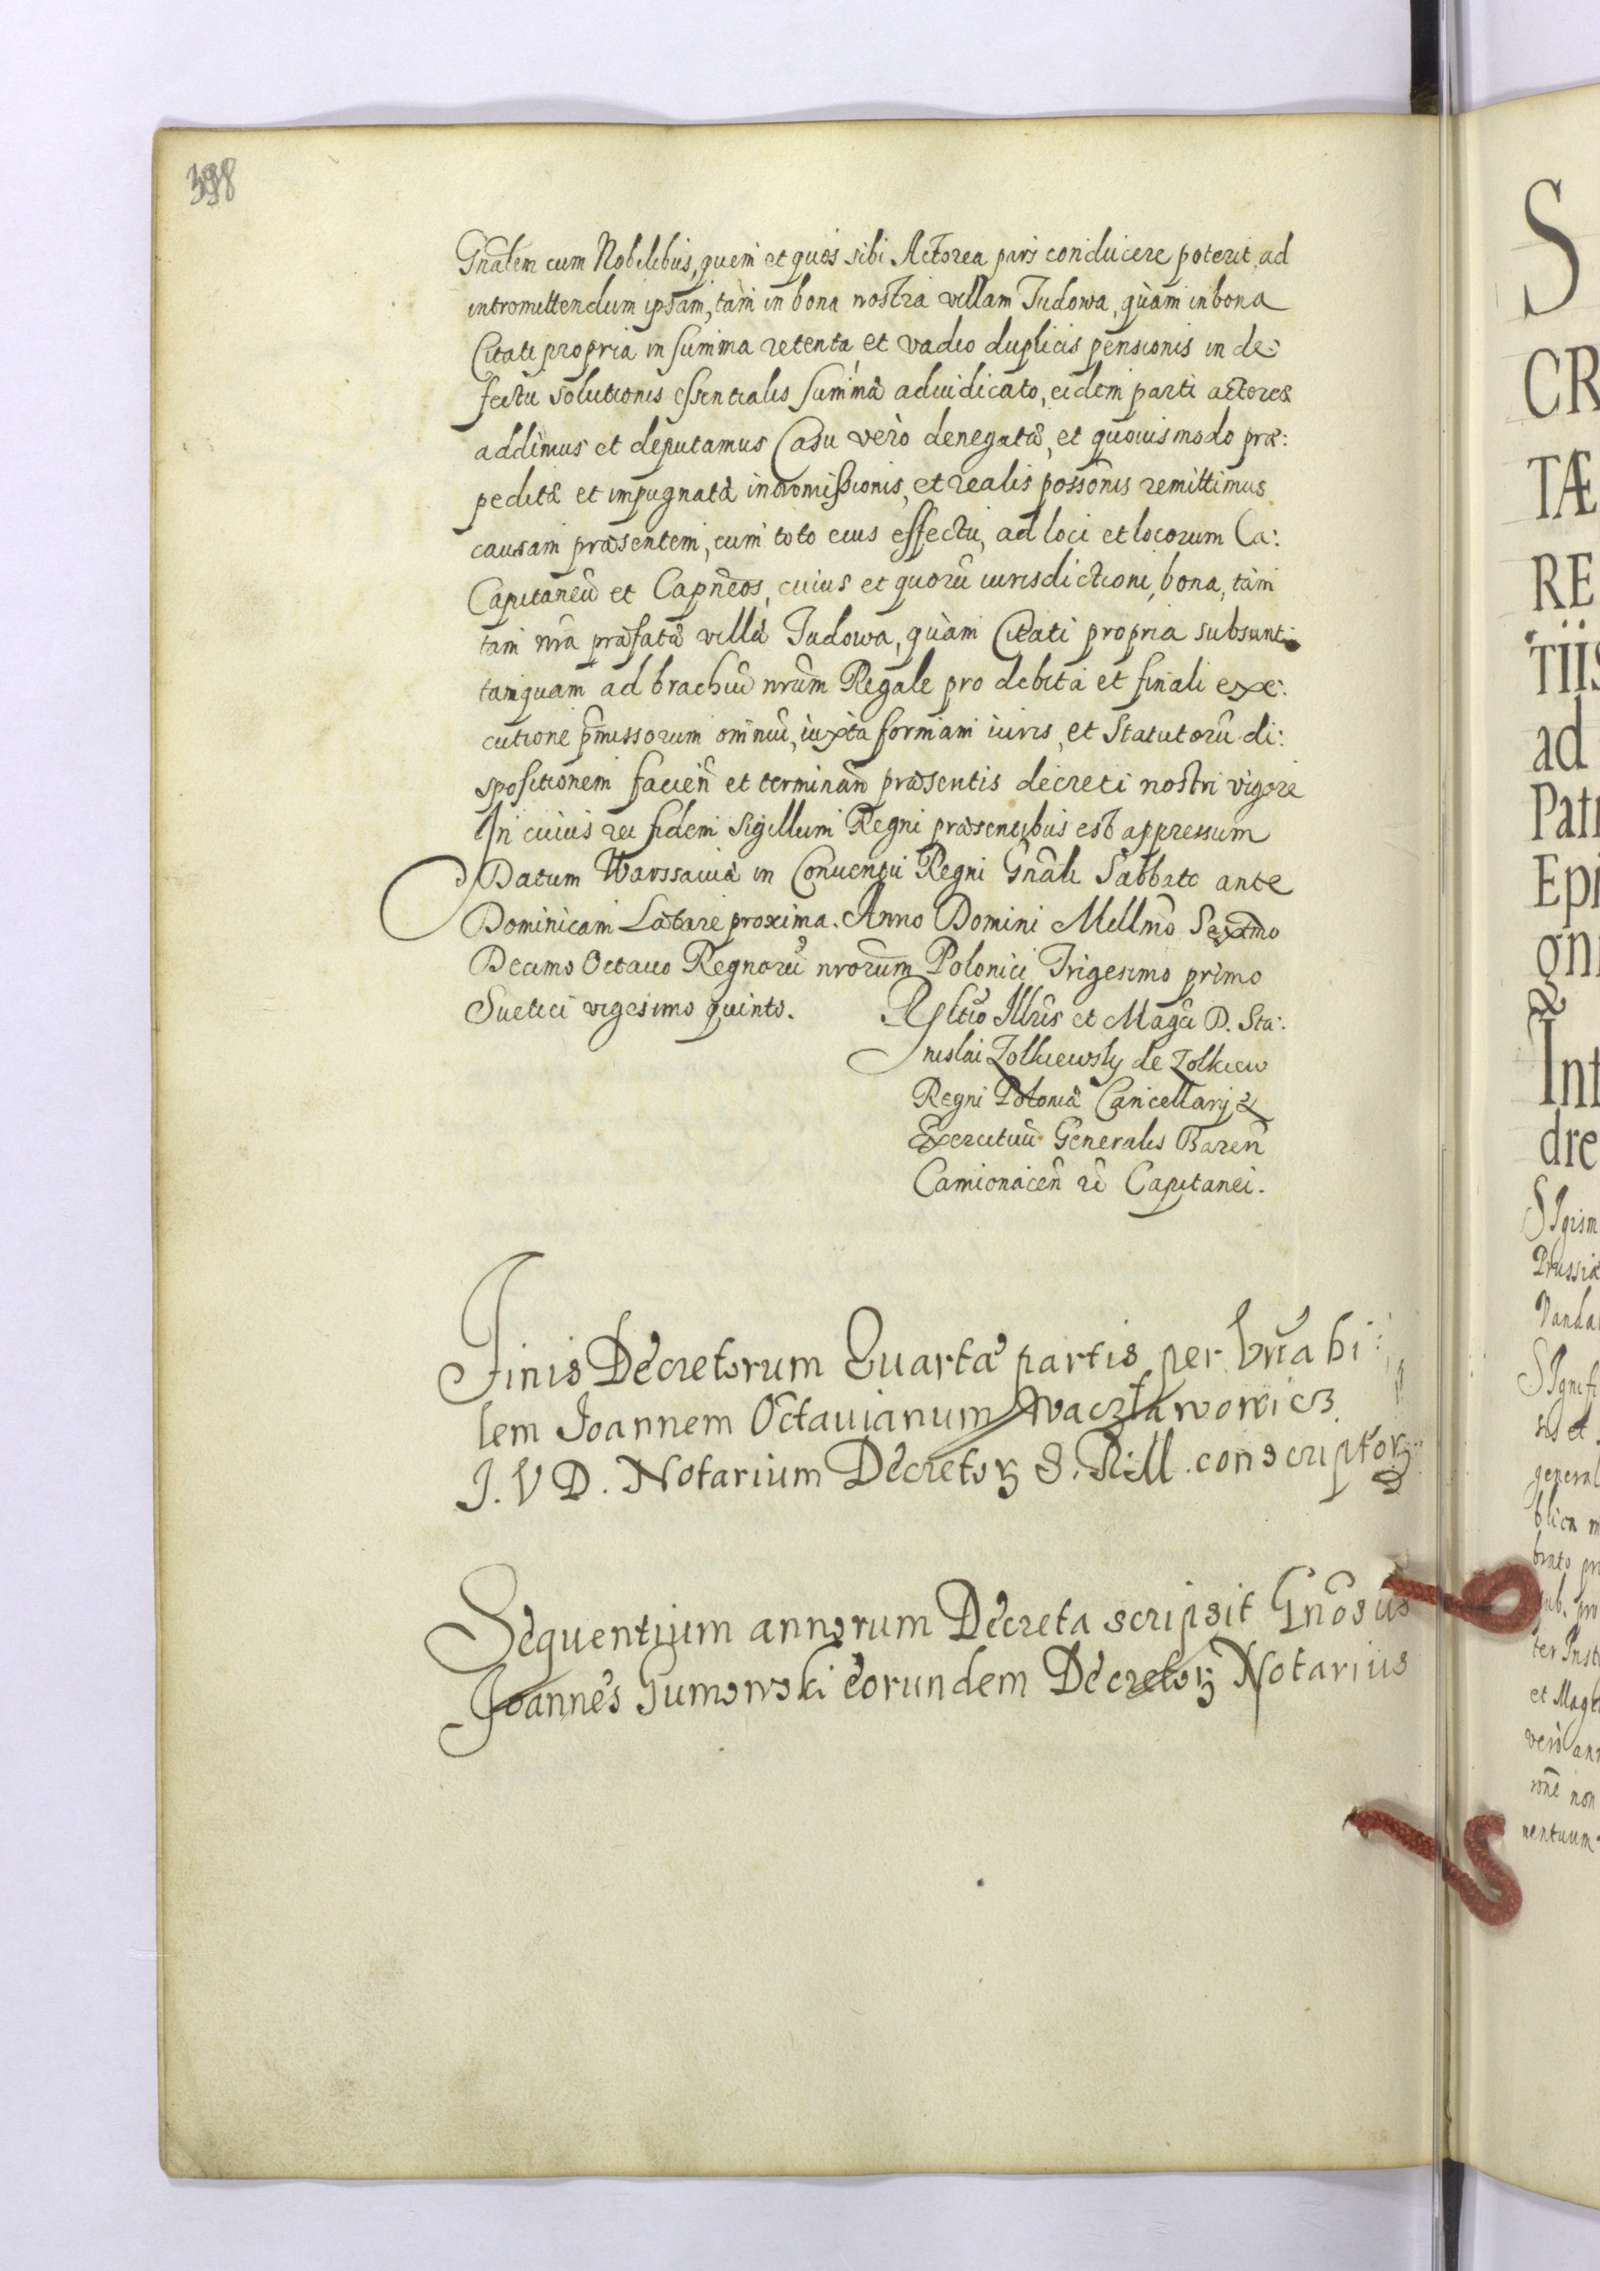 398
Gnalem cum Nobilibus, quem et quos sibi Actorea pars conducere poterit, ad
intromittendum ipsam, tam in bona nostra villam Judowa, quàm in bona
Citati propria in summa retenta, et vadio duplicis pensionis in de:
fectu solutionis essentialis summæ adiudicato, eidem parti actoreæ
addimus et deputamus Casu verò denegatæ, et quouismodo præ:
peditæ et impugnatæ intromissionis, et realis possōnis remittimus
causam præsentem, cum toto eius effectu, ad loci et locorum Ca:
Capitaneū et Capneōs, cuius et quorū iurisdictioni, bona, tàm
tam nra præfata villa Judowa, quàm Citati propria subsunt
tanquam ad brachiū nrūm Regale pro debita et finali exe:
cutione pmissorum omniū, iuxta formam iuris, et Statutorū di:
spositionem facien̄ et terminān præsentis decreti nostri vigore
In cuius rei fidem Sigillum Regni præsentibus est appressum
Datum Warssauiæ in Conuentu Regni Gnāli Sabbato ante
Dominicam Lætare proxima. Anno Domini Millmō Sexmo
Decimo Octauo Regnorū nrorum Polonici Trigesimo primo
Suetici vigesimo quinto.
Rltio Illris et Magci D. Sta:
nislai Zolkiewsky de Zolkiew
Regni Poloniæ Cancellarij &
Exercituū Generalis Baren̄
Camionacen̄ Capitanei.
Finis Decretorum Quartæ partis per Vnābi:
lem Joannem Octauianum Waczławowicz
J. V D. Notarium Decretoꝝ S. R. M. conscriptoꝝ
Sequentium annorum Decreta scripsit Gnōsus
Joannes Gumowski eorundem Decretoꝝ Notarius
S
CR
TÆ
RE
TIIS
ad
Patr
Epi
gni
Int
dre
SIgism
Prussiæ
Vanda
SIgnifi
sis et
general
blica
ter Inst
et Magf
verò ann
non
mentuum